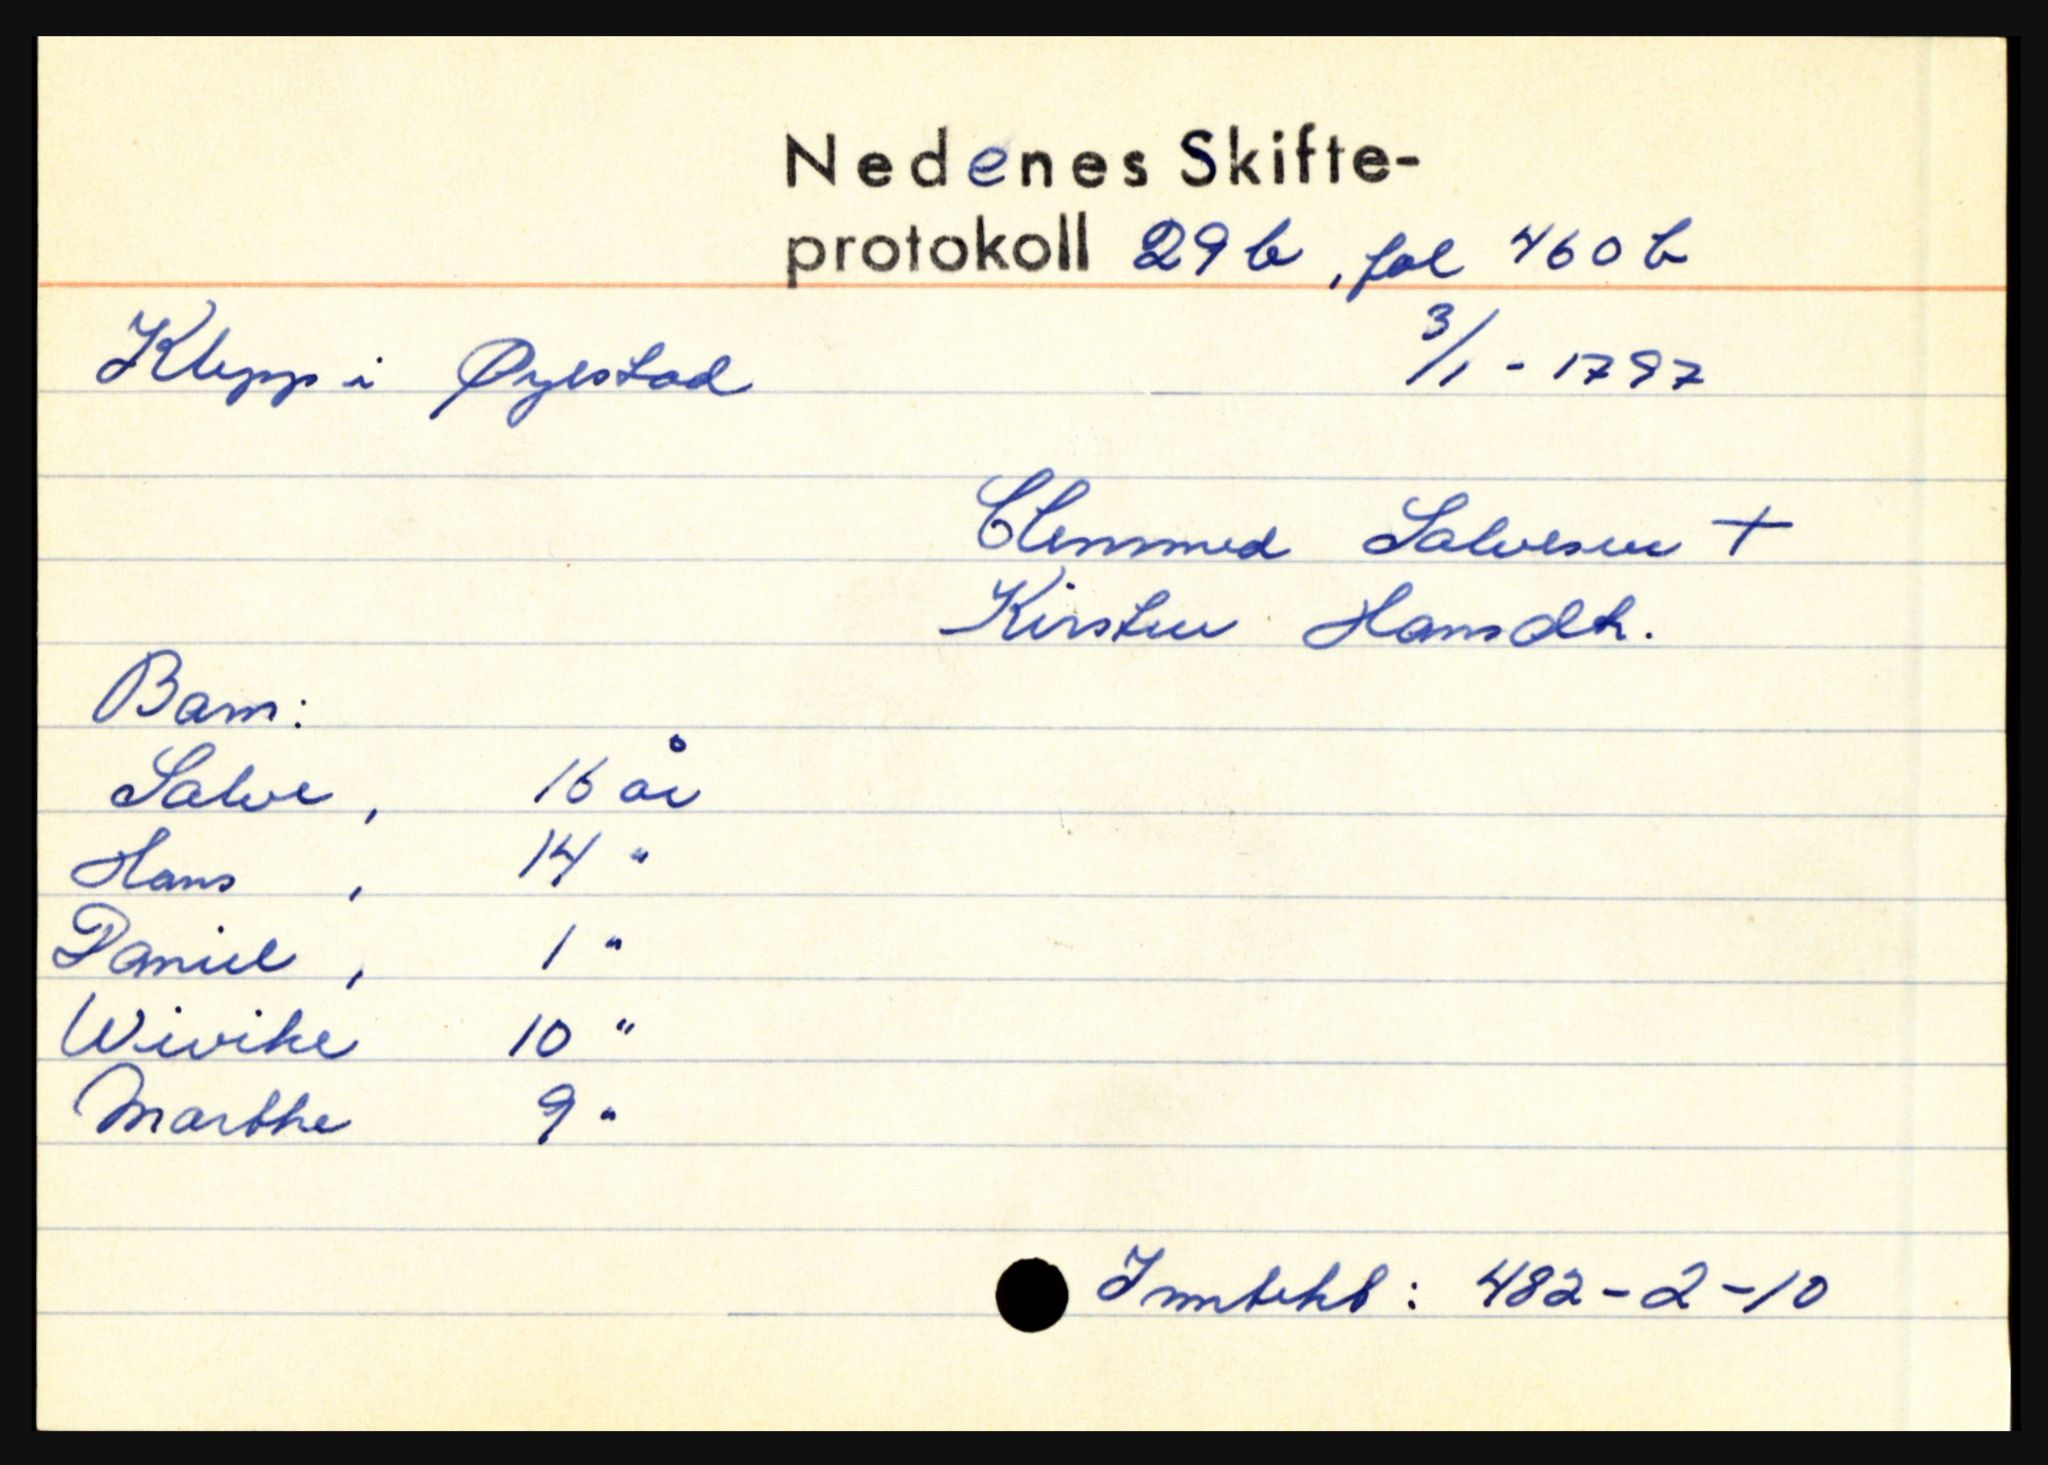 Nedenes Skifte-
protokoll 29 b, fol 460 b
Klepp i Øyestad 3/1 - 1797
Clemmed Salvesen +
Kirsten Hansdtr.
Barn:
Salve, 16 år
Hans, 14 "
Daniel, 1 "
Wivike 10 "
Marthe 9 "
Inntekt: 482-2-10